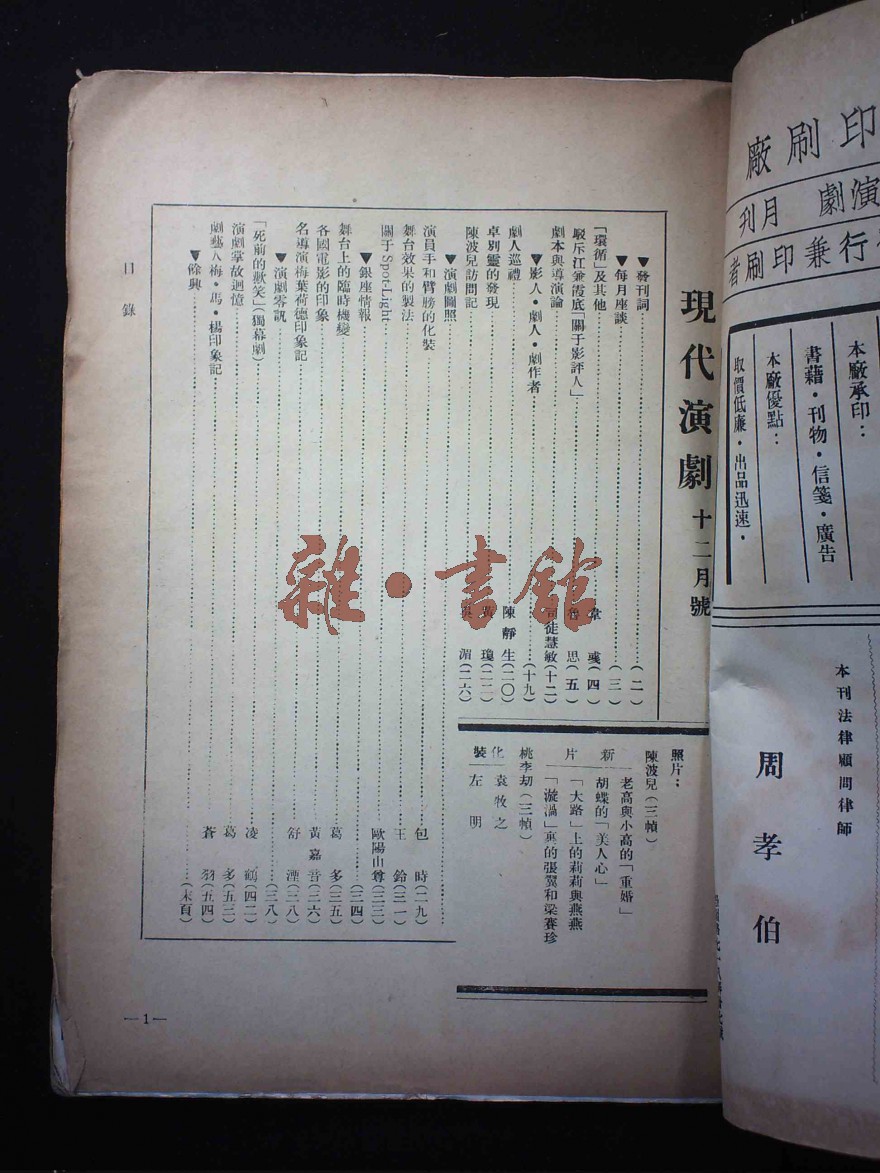 印刷廠
演劇月刊
行兼印刷者
本廠承印：
書藉・刊物・信箋・廣告
本廠優點：
取價低廉・出品迅速・
本刊法律顧問律師
周孝伯
現代演劇 十二月號
▼發刊詞（二）
▼每月座談（三）
「環循」及其他 韋彧（四）
駁斥江兼霞底「關于影評人」 魯思（五）
劇本與導演論 司徒慧敏（十二）
▼影人・劇人・劇作者（十九）
劇人巡禮 陳靜生（二〇）
卓別靈的發現 瓊（二二）
陳波兒訪問記 湄（二六）
▼演劇圖照
演員手和臂膀的化裝 包時（二九）
舞台效果的製法 王鈴（三一）
關于Spot-Light 歐陽山尊（三三）
▼銀座情報（三四）
舞台上的臨時機變 葛多（三五）
各國電影的印象 黃嘉音（三六）
名導演梅葉荷德印象記 舒湮（三八）
▼演劇零訊（三八）
「死前的獸笑」（獨幕劇） 凌鶴（四二）
演劇掌故迴憶 葛多（五三）
劇藝人梅・馬・楊印象記 蒼羽（五四）
▼餘興（末頁）
照片：
陳波兒（三幀）
新片
老高與小高的「重婚」
胡蝶的「美人心」
「大路」上的莉莉與燕燕
「漩渦」裏的張翼和梁賽珍
桃李劫（三幀）
化裝
袁牧之
左明
目錄
—1—
雜・書館